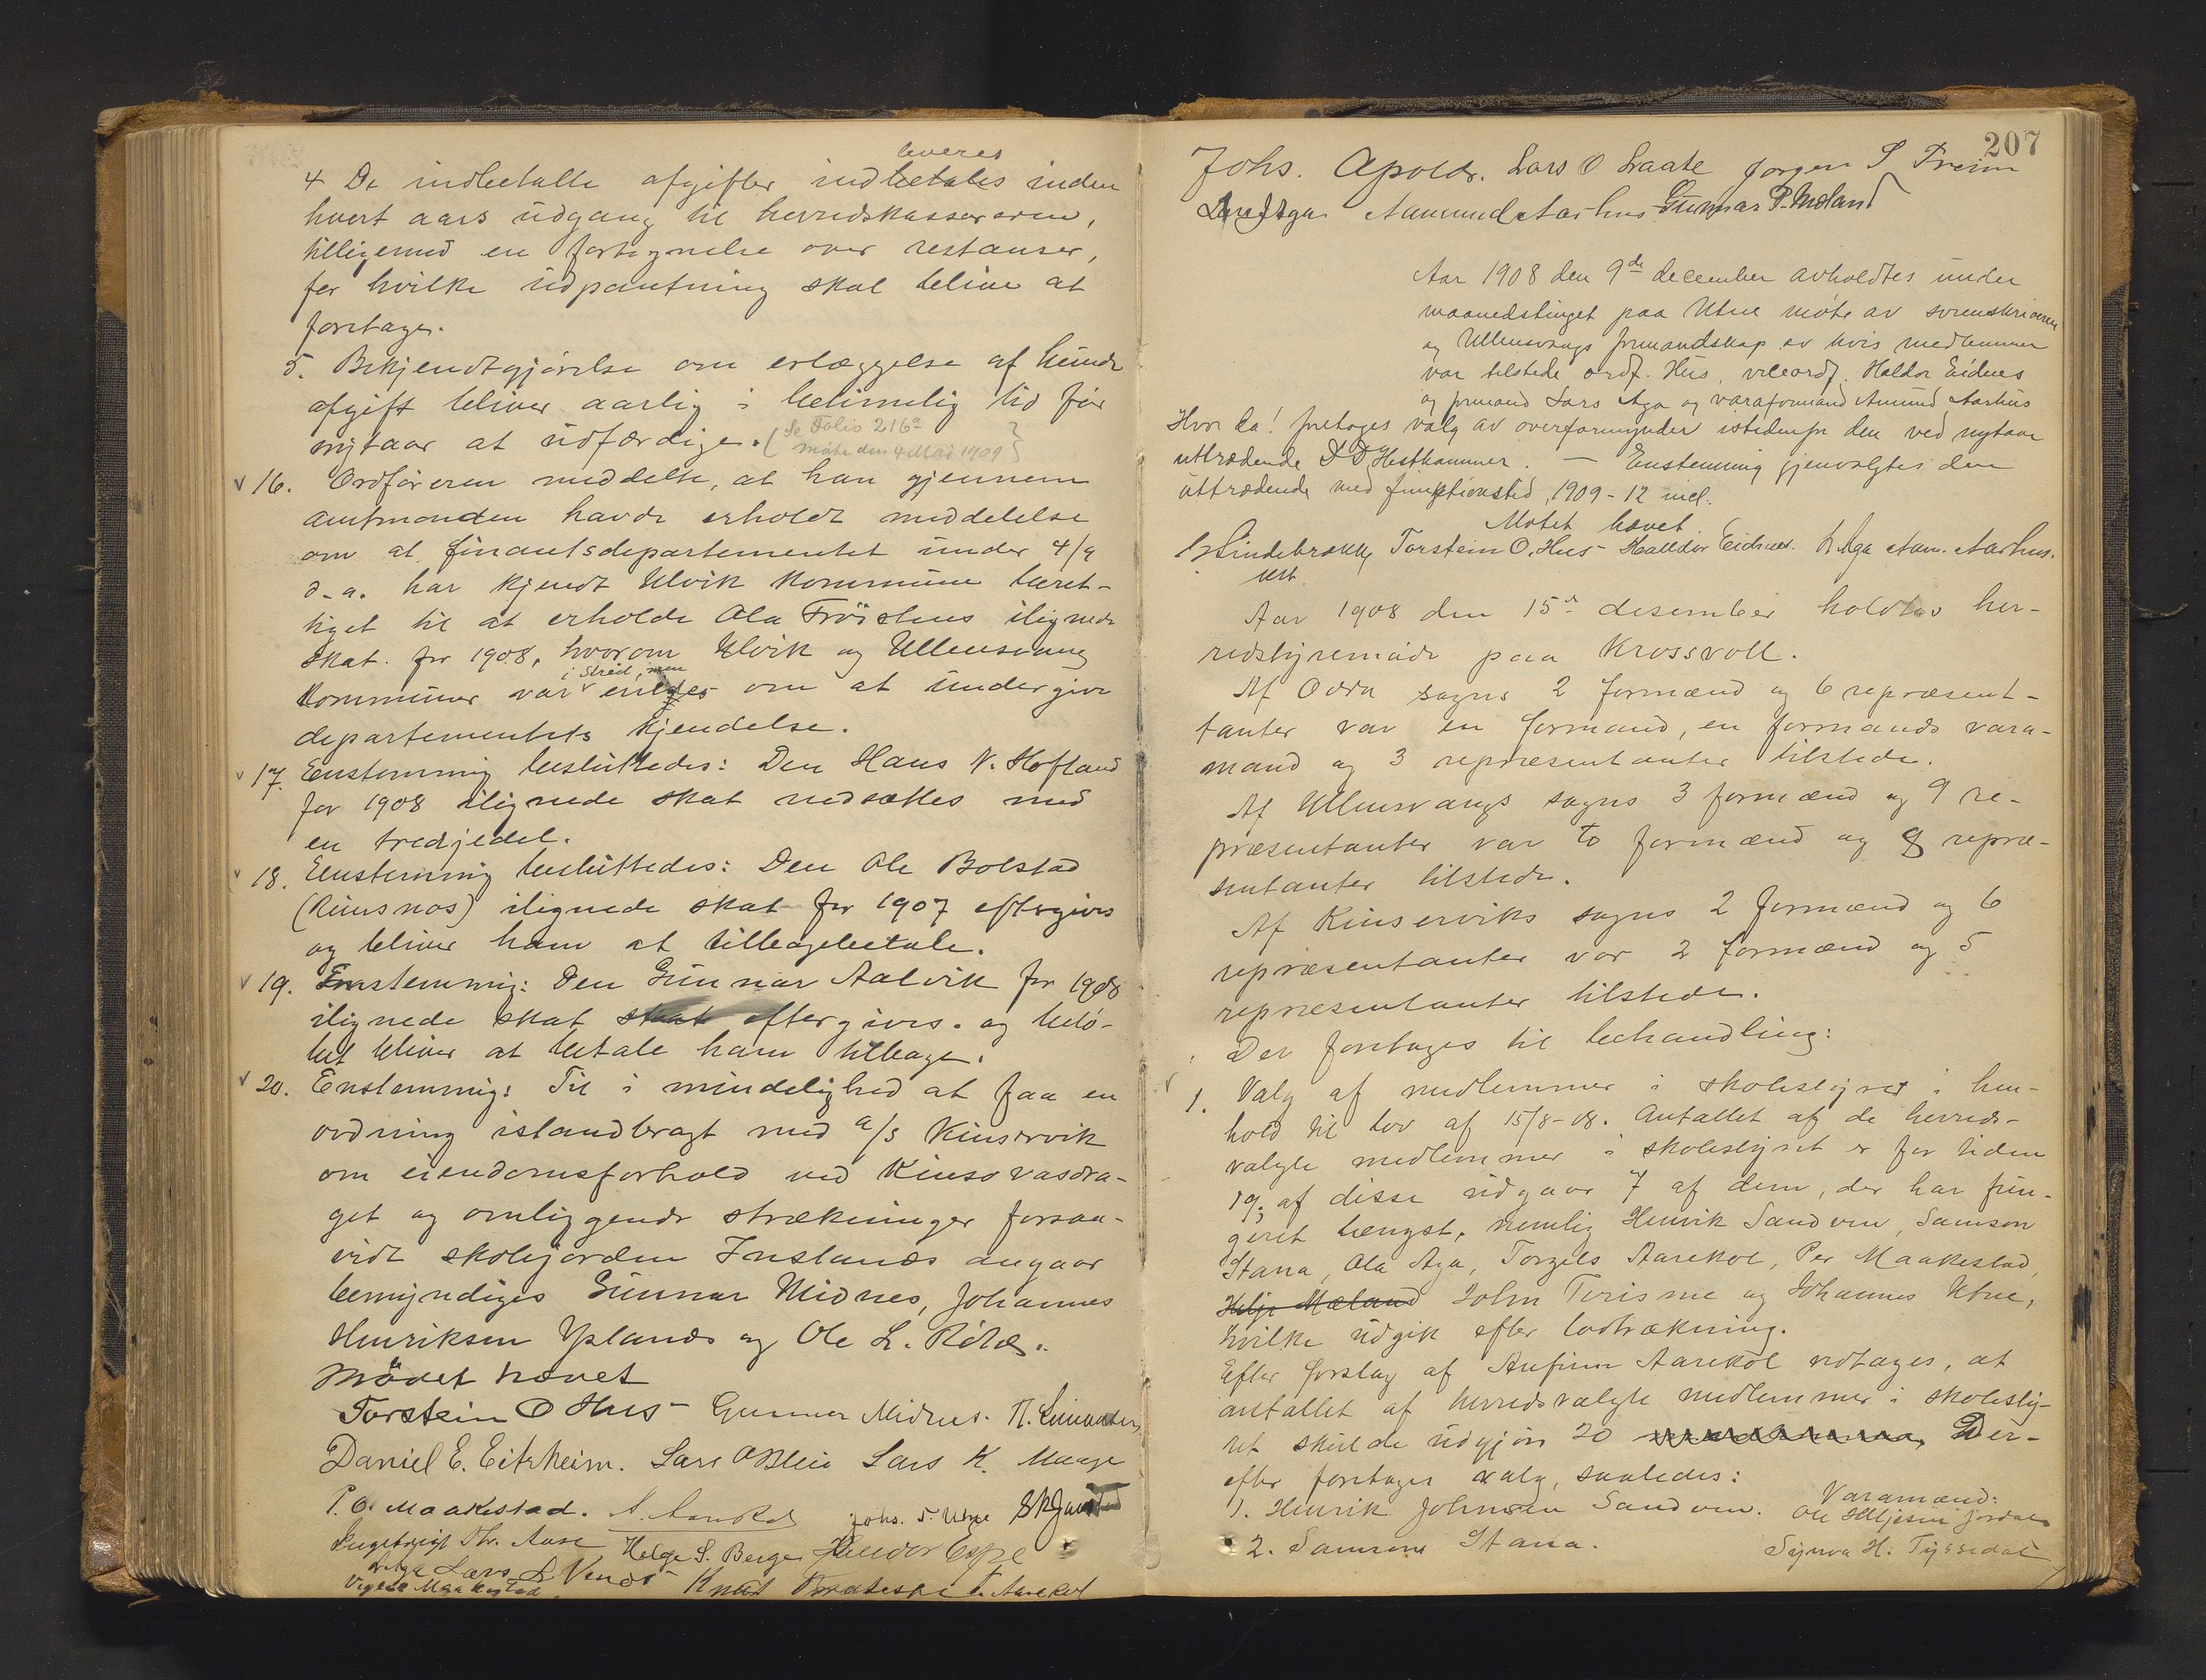 4 De indbetalte afgifter indbetales inden
leveres
hvert aars udgang til herredskassereren,
tilligemed en fortegnelse over restanser,
for hvilke udpantning skal blive at
foretage.
5. Bekjendtgjørelse om erlæggelse af hunde
afgift bliver aarlig i betimelig tid før
nytaar at udfærdige. (Se Folio 216a
møte den 4 Mai 1909)
v 16. Ordføreren meddelte, at han gjennem
amtmanden havde erholdt meddelelse
om at finantsdepartementet under 4/9
d.a. har kjendt Ulvik kommune beret-
tiget til at erholde Ola Frøstens ilignede
skat for 1908, hvorom Ulvik og Ullensvang
i strid, men
kommuner var enedes om at undergive
departementets kjendelse.
v 17. Enstemmig besluttedes: Den Hans N. Hofland
for 1908 ilignede skat nedsættes med
en tredjedel.
v 18. Enstemmig besluttedes: Den Ole Bolstad
(Rusnos) ilignede skat for 1907 eftergives
og bliver ham at tilbagebetale.
v 19. Enstemmig: Den Gunnar Aalvik for 1908
ilignede skat skat eftergives. og belø-
bet bliver at betale ham tilbage.
v 20. Enstemmig: Til i mindelighed at faa en
ordning istandbragt med a/s Kinservik
om eiendomsforhold ved Kinsovasdra-
get og omliggende strækninger forsaa-
vidt skolejorden Instanæs angaar
bemyndiges Gunnar Midnes, Johannes
Henriksen Ystanæs og Ole L. Røte.
Mødet hævet
Torstein O Hus - Gunnar Midnes.
Daniel E. Eitrheim. Lars O Bleie Lars K. Maage
P. O. Maakestad. Johs. T. Utne
Ingebrigt Th. Aase Helge S. Berge Halldor Espe
L Aga Lars L. Vendt
Vigleik Maakestad Knut T. Aarekol
207
Johs. Apold. Lars O Laate Jørgen S Freim
Lars Aga Aamund Aarhus Gunnar P. Meland
Aar 1908 den 9de december avholdtes under
maanedstinget paa Utne møte av sorenskriveren
og Ullensvangs formandskap av hvis medlemmer
var tilstede ordf. Hus, viceordf. Haldor Eidnes
og formand Lars Aga og varaformand Amund Aarhus
Hvor da! foretoges valg av overformynder istedenfor den ved nytaar
uttrædende D D Hesthammer. — Enstemmig gjenvalgtes den
uttrædende med funktionstid 1909-12 incl.
Møtet hævet.
Lindebrække Torstein O. Hus - Halldor Eidnes. L Aga Aam. Aarhus.
kst.
Aar 1908 den 15de desember holdtes her-
redstyremøde paa Krossvoll.
Af Odda sogns 2 formænd og 6 repræsent-
tanter var en formand, en formands vara-
mand og 3 repræsentanter tilstede.
Af Ullensvangs sogns 3 formænd og 9 re-
præsentanter var to formænd og 8 repræ-
sentanter tilstede.
Af Kinserviks sogns 2 formænd og 6
repræsentanter var 2 formænd og 5
repræsentanter tilstede.
Der foretoges til behandling:
v 1. Valg af medlemmer i skolestyret i hen-
hold til lov af 15/8-08. Antallet af de herreds-
valgte medlemmer i skolestyret er for tiden
19; af disse udgaar 7 af dem, der har fun-
geret længst, nemlig Henrik Sandven, Samson
Stana, Ola Aga, Torgils Aarekol, Per Maakestad,
Helje Mæland John Tveisme og Johannes Utne,
hvilke udgik efter lodtrækning.
Efter forslag af Anfinn Aarekol vedtages, at
antallet af herredsvalgte medlemmer i skolesty-
ret skulde udgjøre 20 Der-
efter foretoges valg, saaledes:
Varamænd:
1. Henrik Johnsen Sandven. Ole Heljesen Jordal
2. Samson Stana. Synva H. Tyssedal